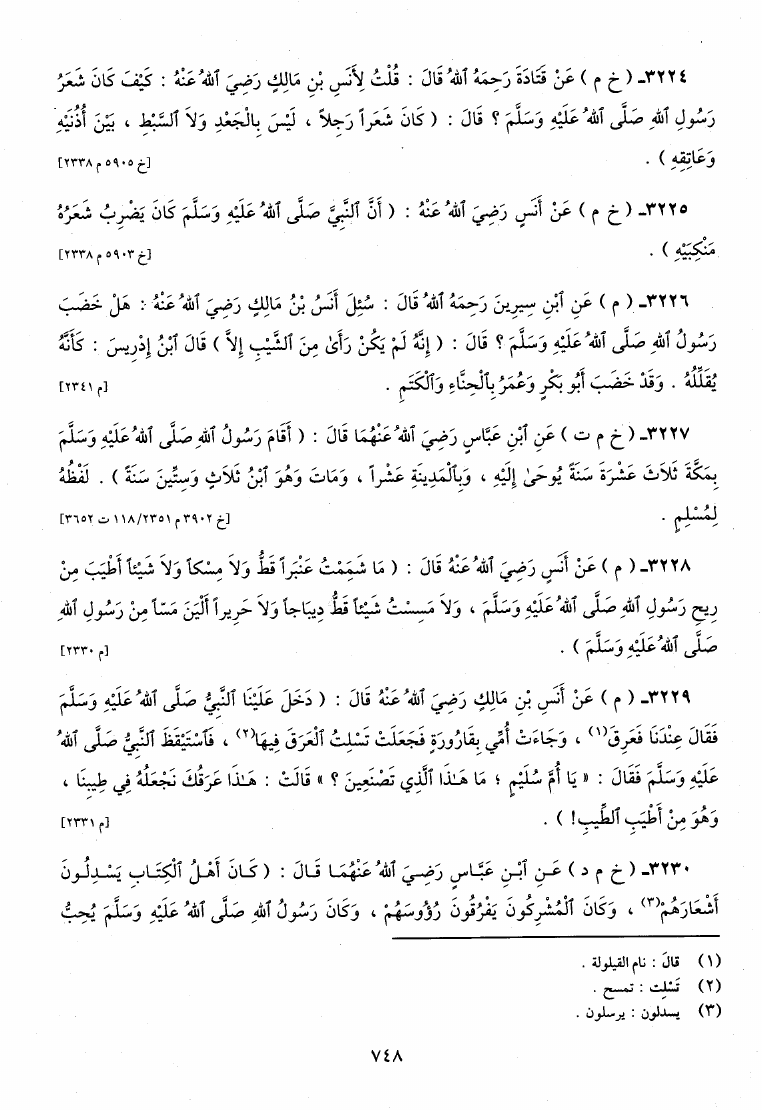 ٣٢٢٤ـ ( خ م ) عَنْ قَتَادَةَ رَحِمَهُ ٱللهُ قَالَ : قُلْتُ لِأَنَسِ بْنِ مَالِكٍ رَضِيَ ٱللهُ عَنْهُ : كَيْفَ كَانَ شَعَرُ
رَسُولِ ٱللهِ صَلَّى ٱللهُ عَلَيْهِ وَسَلَّمَ ؟ قَالَ : ( كَانَ شَعَراً رَجِلاً ، لَيْسَ بِالْجَعْدِ وَلاَ ٱلسَّبْطِ ، بَيْنَ أُذُنَيْهِ
وَعَاتِقِهِ ) . [خ ٥٩٠٥ م ٢٣٣٨]
٣٢٢٥ـ ( خ م ) عَنْ أَنَسٍ رَضِيَ ٱللهُ عَنْهُ : ( أَنَّ ٱلنَّبِيَّ صَلَّى ٱللهُ عَلَيْهِ وَسَلَّمَ كَانَ يَضْرِبُ شَعَرُهُ
مَنْكِبَيْهِ ) . [خ ٥٩٠٣ م ٢٣٣٨]
٣٢٢٦ـ ( م ) عَنِ ٱبْنِ سِيرِينَ رَحِمَهُ ٱللهُ قَالَ : سُئِلَ أَنَسُ بْنُ مَالِكٍ رَضِيَ ٱللهُ عَنْهُ : هَلْ خَضَبَ
رَسُولُ ٱللهِ صَلَّى ٱللهُ عَلَيْهِ وَسَلَّمَ ؟ قَالَ : ( إِنَّهُ لَمْ يَكُنْ رَأَىٰ مِنَ ٱلشَّيْبِ إِلاَّ ) قَالَ ٱبْنُ إِدْرِيسَ : كَأَنَّهُ
يُقَلِّلُهُ . وَقَدْ خَضَبَ أَبُو بَكْرٍ وَعُمَرُ بِٱلْحِنَّاءِ وَٱلْكَتَمِ . [م ٢٣٤١]
٣٢٢٧ـ ( خ م ت ) عَنِ ٱبْنِ عَبَّاسٍ رَضِيَ ٱللهُ عَنْهُمَا قَالَ : ( أَقَامَ رَسُولُ ٱللهِ صَلَّى ٱللهُ عَلَيْهِ وَسَلَّمَ
بِمَكَّةَ ثَلاَثَ عَشْرَةَ سَنَةً يُوحَىٰ إِلَيْهِ ، وَبِٱلْمَدِينَةِ عَشْراً ، وَمَاتَ وَهُوَ ٱبْنُ ثَلاَثٍ وَسِتِّينَ سَنَةً ) . لَفْظُهُ
لِمُسْلِمٍ . [خ ٣٩٠٢ م ١١٨/٢٣٥١ ت ٣٦٥٢]
٣٢٢٨ـ ( م ) عَنْ أَنَسٍ رَضِيَ ٱللهُ عَنْهُ قَالَ : ( مَا شَمِمْتُ عَنْبَراً قَطُّ وَلاَ مِسْكاً وَلاَ شَيْئاً أَطْيَبَ مِنْ
رِيحِ رَسُولِ ٱللهِ صَلَّى ٱللهُ عَلَيْهِ وَسَلَّمَ ، وَلاَ مَسِسْتُ شَيْئاً قَطُّ دِيبَاجاً وَلاَ حَرِيراً أَلْيَنَ مَسّاً مِنْ رَسُولِ ٱللهِ
صَلَّى ٱللهُ عَلَيْهِ وَسَلَّمَ ) . [م ٢٣٣٠]
٣٢٢٩ـ ( م ) عَنْ أَنَسِ بْنِ مَالِكٍ رَضِيَ ٱللهُ عَنْهُ قَالَ : ( دَخَلَ عَلَيْنَا ٱلنَّبِيُّ صَلَّى ٱللهُ عَلَيْهِ وَسَلَّمَ
فَقَالَ عِنْدَنَا فَعَرِقَ(١) ، وَجَاءَتْ أُمِّي بِقَارُورَةٍ فَجَعَلَتْ تَسْلِتُ ٱلْعَرَقَ فِيهَا(٢) ، فَٱسْتَيْقَظَ ٱلنَّبِيُّ صَلَّى ٱللهُ
عَلَيْهِ وَسَلَّمَ فَقَالَ : « يَا أُمَّ سُلَيْمٍ ؛ مَا هَـٰذَا ٱلَّذِي تَصْنَعِينَ ؟ » قَالَتْ : هَـٰذَا عَرَقُكَ نَجْعَلُهُ فِي طِيبِنَا ،
وَهُوَ مِنْ أَطْيَبِ ٱلطِّيبِ! ) . [م ٢٣٣١]
٣٢٣٠ـ ( خ م د ) عَنِ ٱبْنِ عَبَّاسٍ رَضِيَ ٱللهُ عَنْهُمَا قَالَ : ( كَانَ أَهْلُ ٱلْكِتَابِ يَسْدِلُونَ
أَشْعَارَهُمْ(٣) ، وَكَانَ ٱلْمُشْرِكُونَ يَفْرُقُونَ رُؤُوسَهُمْ ، وَكَانَ رَسُولُ ٱللهِ صَلَّى ٱللهُ عَلَيْهِ وَسَلَّمَ يُحِبُّ
(١) قالَ : نام القيلولة .
(٢) تَسْلِت : تمسح .
(٣) يسدلون : يرسلون .
٧٤٨